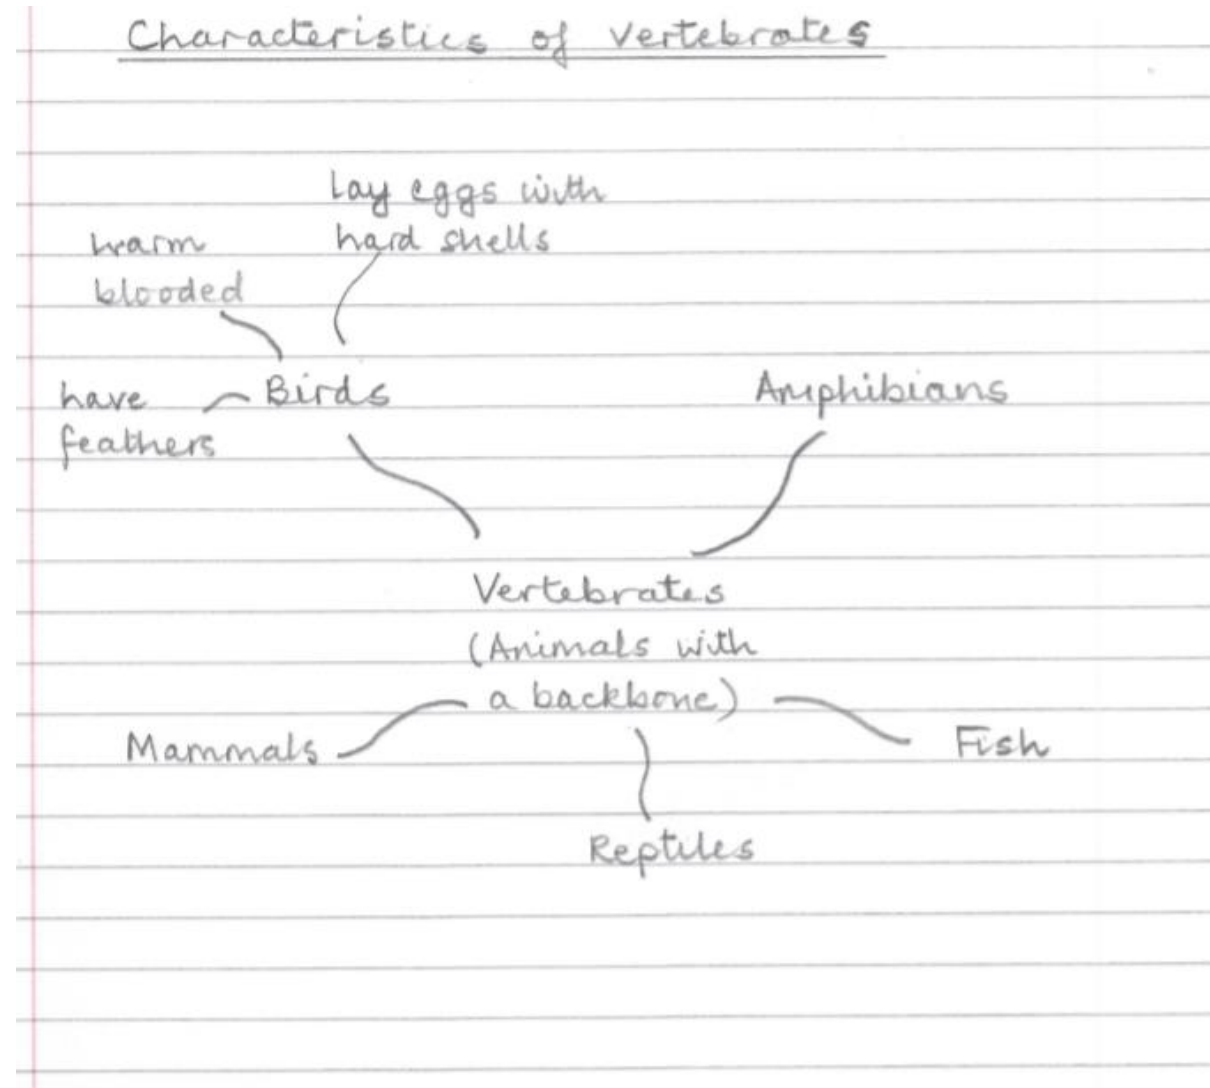 Characteristics of Vertebrates
lay eggs with
hard shells
warm
blooded
have
feathers
Birds
Amphibians
Vertebrates
(Animals with
a backbone)
Mammals
Fish
Reptiles